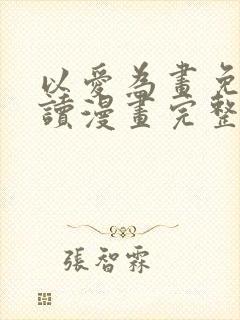 以愛為畫免
讀漫畫完整
張智霖